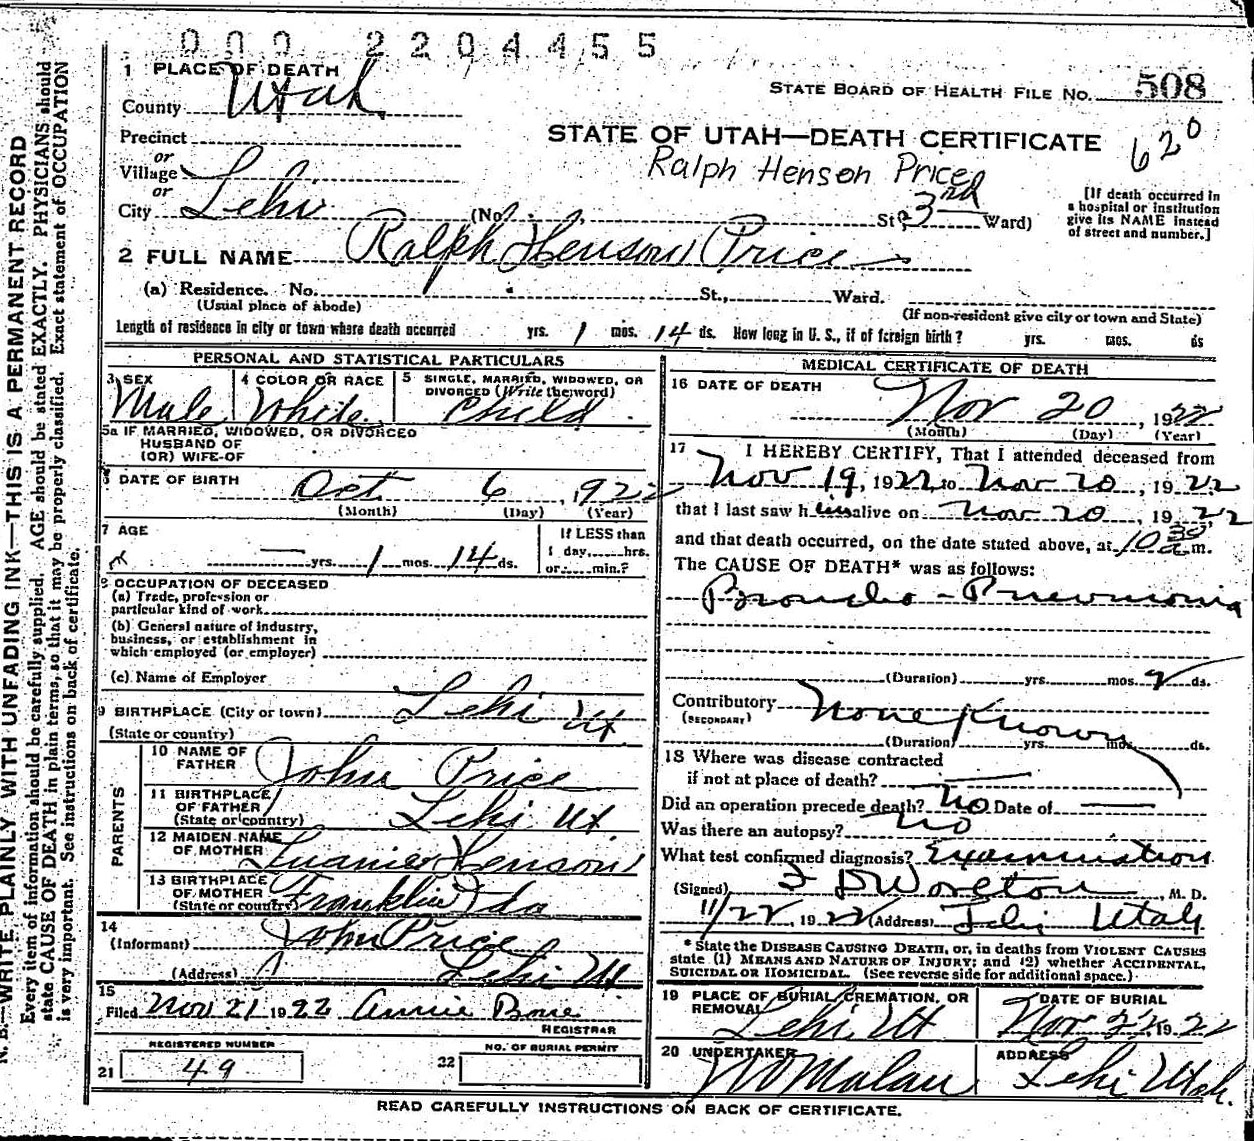 000 2204455
1 PLACE OF DEATH
County Utah
STATE BOARD OF HEALTH FILE No. 508
Precinct
or
Village
or
City Lehi
STATE OF UTAH—DEATH CERTIFICATE
620
Ralph Henson Price
(No. St., 3rd Ward)
[If death occurred in
a hospital or institution
give its NAME instead
of street and number.]
2 FULL NAME Ralph Henson Price
(a) Residence. No. St., Ward.
(Usual place of abode)
(If non-resident give city or town and State)
Length of residence in city or town where death occurred yrs. 1 mos. 14 ds. How long in U. S., if of foreign birth? yrs. mos. ds
PERSONAL AND STATISTICAL PARTICULARS
3 SEX
Male
4 COLOR OR RACE
White
5 SINGLE, MARRIED, WIDOWED, OR
DIVORCED (Write the word)
Child
5a IF MARRIED, WIDOWED, OR DIVORCED
HUSBAND OF
(OR) WIFE OF
6 DATE OF BIRTH Oct 6, 1922
(Month) (Day) (Year)
7 AGE
yrs. 1 mos. 14 ds.
If LESS than
1 day, hrs.
or min.?
8 OCCUPATION OF DECEASED
(a) Trade, profession or
particular kind of work
(b) General nature of industry,
business, or establishment in
which employed (or employer)
(c) Name of Employer
9 BIRTHPLACE (City or town) Lehi Ut
(State or country)
PARENTS
10 NAME OF
FATHER John Price
11 BIRTHPLACE
OF FATHER
(State or country) Lehi Ut
12 MAIDEN NAME
OF MOTHER Henson
13 BIRTHPLACE
OF MOTHER
(State or country) Franklin Ida
14
(Informant) John Price
(Address) Lehi Ut
15
Filed Nov 21 1922 Annie Bone
REGISTRAR
REGISTERED NUMBER
21 49
NO. OF BURIAL PERMIT
22
MEDICAL CERTIFICATE OF DEATH
16 DATE OF DEATH
Nov 20, 1922
(Month) (Day) (Year)
17 I HEREBY CERTIFY, That I attended deceased from
Nov 19, 1922 to Nov 20, 1922
that I last saw him alive on Nov 20, 1922
and that death occurred, on the date stated above, at 10 30 a m.
The CAUSE OF DEATH* was as follows:
Broncho-Pneumonia
(Duration) yrs. mos. 2 ds.
Contributory None Known
(SECONDARY)
(Duration) yrs. mos. ds.
18 Where was disease contracted
if not at place of death?
Did an operation precede death? no Date of
Was there an autopsy? no
What test confirmed diagnosis? Examination
(Signed) F D Worlton, M. D.
11/22, 1922 (Address) Lehi Utah
* State the DISEASE CAUSING DEATH, or, in deaths from VIOLENT CAUSES
state (1) MEANS AND NATURE OF INJURY; and (2) whether ACCIDENTAL,
SUICIDAL OR HOMICIDAL. (See reverse side for additional space.)
19 PLACE OF BURIAL, CREMATION, OR
REMOVAL
Lehi Ut
DATE OF BURIAL
Nov 22 1922
20 UNDERTAKER
Malan
ADDRESS
Lehi Utah.
READ CAREFULLY INSTRUCTIONS ON BACK OF CERTIFICATE.
N. B.—WRITE PLAINLY WITH UNFADING INK—THIS IS A PERMANENT RECORD
Every item of information should be carefully supplied. AGE should be stated EXACTLY. PHYSICIANS should
state CAUSE OF DEATH in plain terms, so that it may be properly classified. Exact statement of OCCUPATION
is very important. See instructions on back of certificate.